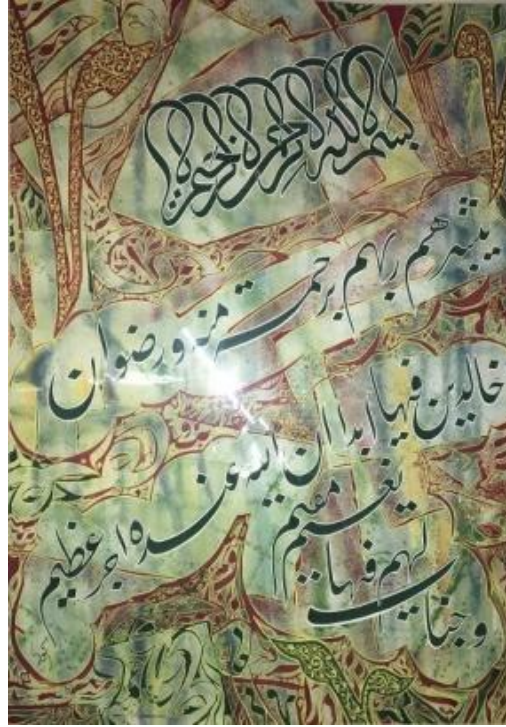 بسم الله الرحمن الرحیم
یبشرهم ربهم برحمت منه و رضوان
خالدین فیها ابدا ان الله عنده اجر عظیم
و جنات لهم فیها نعیم مقیم